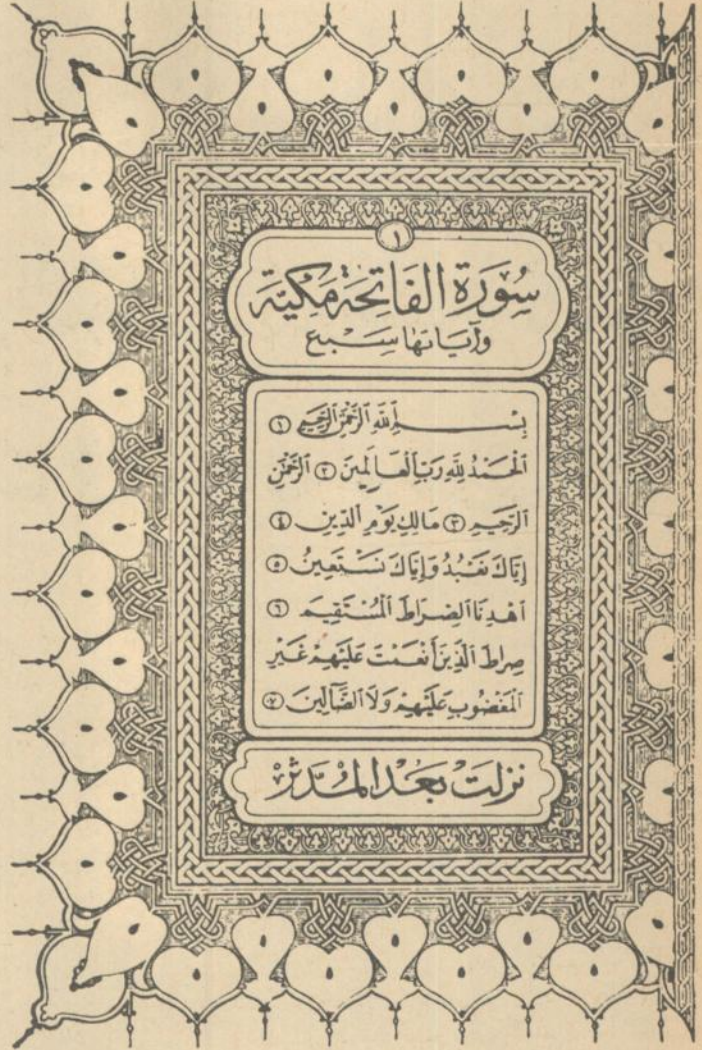 ١
سُورَة الفَاتِحَة مَكيّة
وآيَاتها سَبْع
بِسْمِ اللَّهِ الرَّحْمَٰنِ الرَّحِيمِ ١
الْحَمْدُ لِلَّهِ رَبِّ الْعَالَمِينَ ٢ الرَّحْمَٰنِ
الرَّحِيمِ ٣ مَالِكِ يَوْمِ الدِّينِ ٤
إِيَّاكَ نَعْبُدُ وَإِيَّاكَ نَسْتَعِينُ ٥
اهْدِنَا الصِّرَاطَ الْمُسْتَقِيمَ ٦
صِرَاطَ الَّذِينَ أَنْعَمْتَ عَلَيْهِمْ غَيْرِ
الْمَغْضُوبِ عَلَيْهِمْ وَلَا الضَّآلِّينَ ٧
نزلَتْ بَعْد المُدَّثِّر